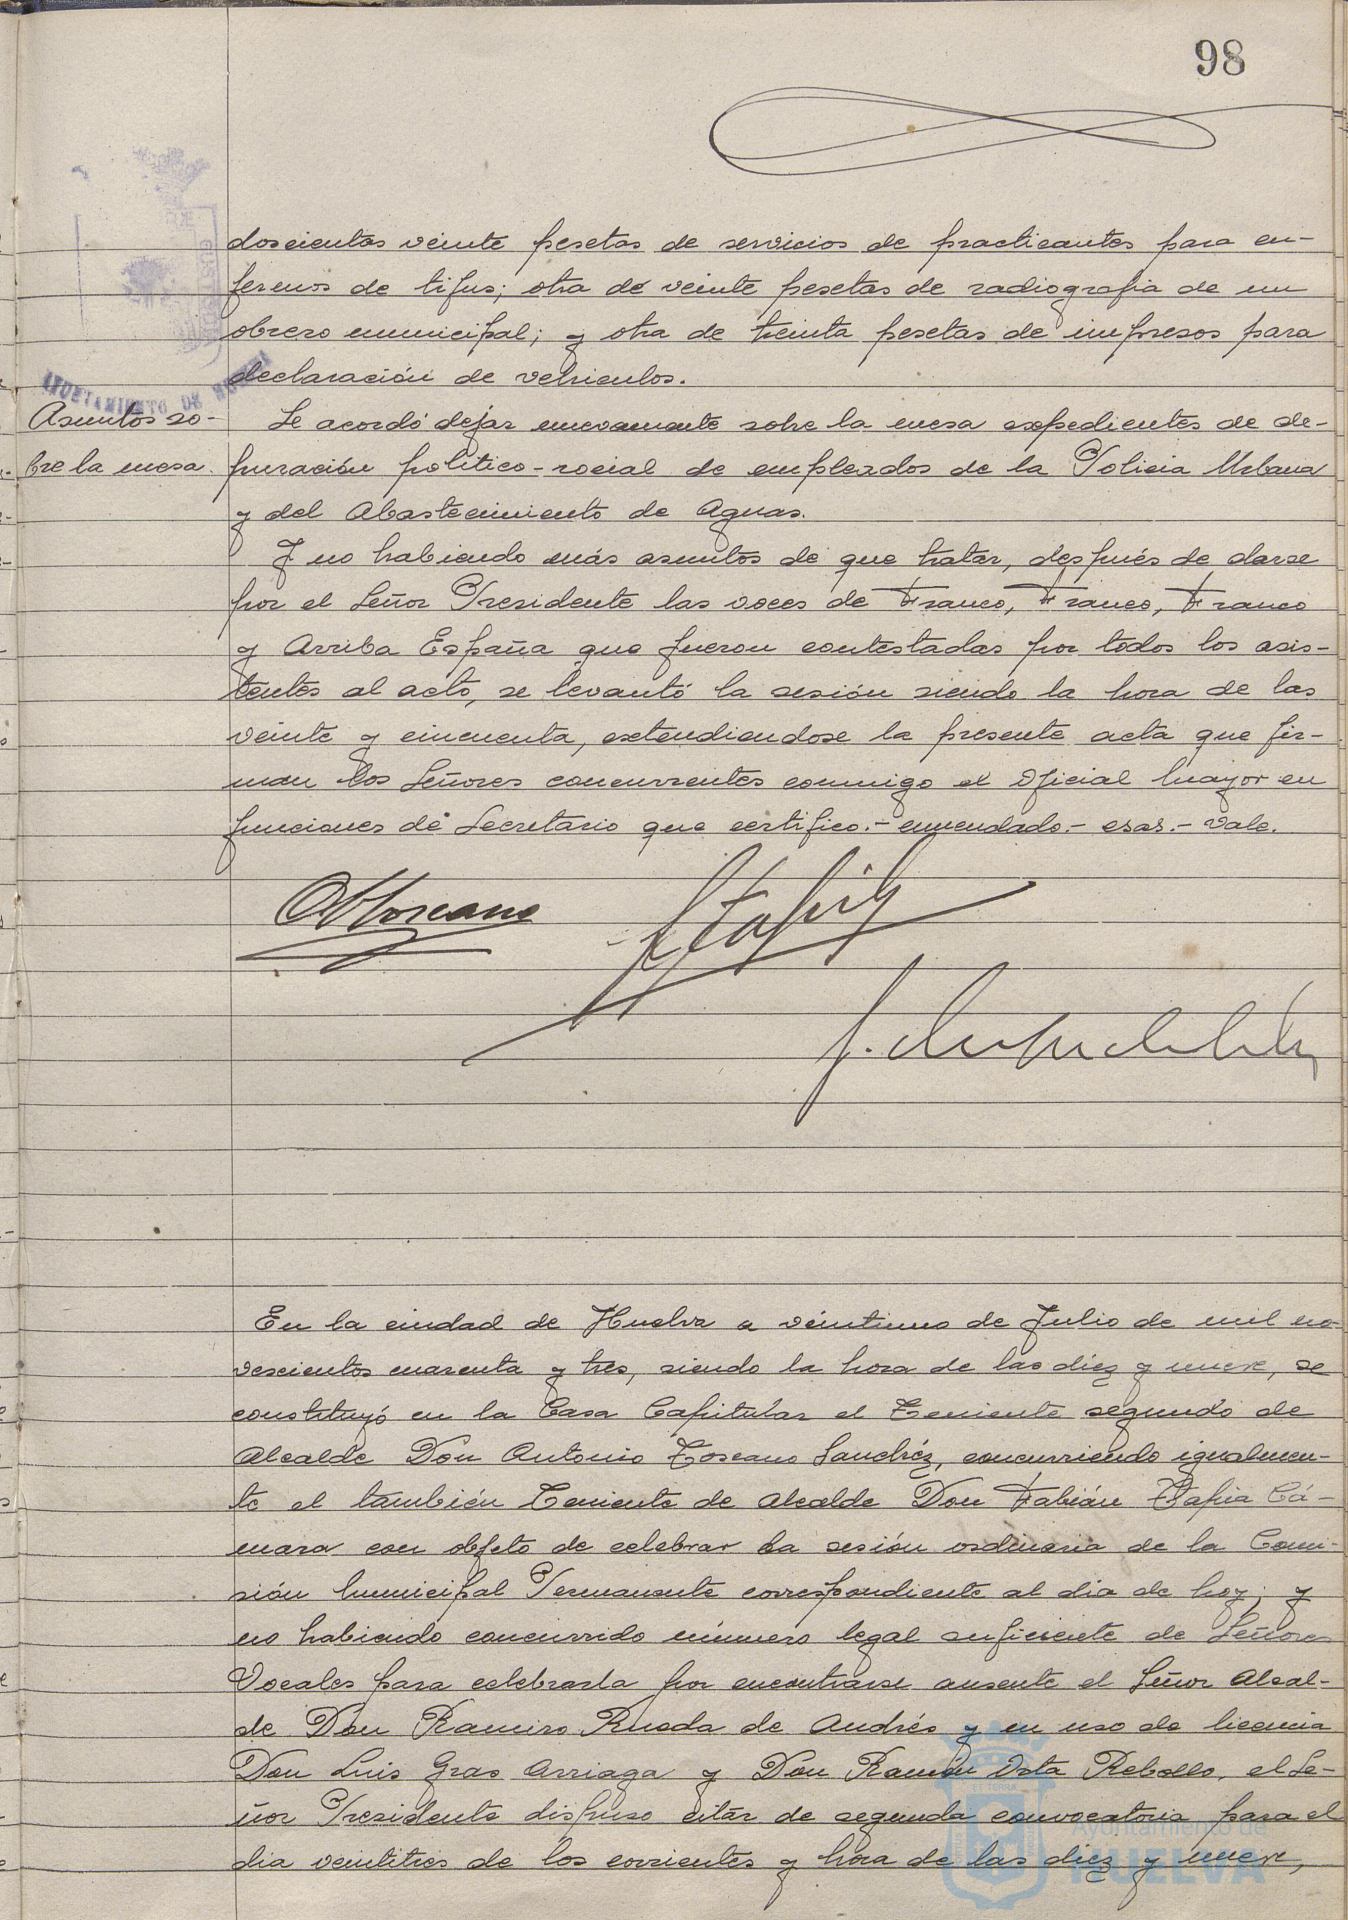 98
doscientas veinte pesetas de servicios de practicantes para en-
fermos de tifus; otra de veinte pesetas de radiografia de un
obrero municipal; y otra de treinta pesetas de impresos para
declaración de vehiculos.
AYUNTAMIENTO DE HUELVA
Asuntos so-
bre la mesa.
Se acordó dejar nuevamente sobre la mesa expedientes de de-
puración politico-social de empleados de la Policia Urbana
y del Abastecimiento de Aguas.
Y no habiendo más asuntos de que tratar, después de darse
por el Señor Presidente las voces de Franco, Franco, Franco
y Arriba España que fueron contestadas por todos los asis-
tentes al acto, se levantó la sesión siendo la hora de las
veinte y cincuenta, extendiendose la presente acta que fir-
man los Señores concurrentes conmigo el Oficial Mayor en
funciones de Secretario que certifico.- enmendado.- esas.- Vale.
A Toscano
F Tapia
En la ciudad de Huelva a veintiuno de Julio de mil no-
vescientos cuarenta y tres, siendo la hora de las diez y nueve, se
constituyó en la Casa Capitular el Teniente segundo de
Alcalde Don Antonio Toscano Sanchéz, concurriendo igualmen-
te el también Teniente de Alcalde Don Fabián Tapia Cá-
mara con objeto de celebrar la sesión ordinaria de la Comi-
sión Municipal Permanente correspondiente al dia de hoy; y
no habiendo concurrido número legal suficiente de Señores
Vocales para celebrarla por encontrarse ausente el Señor Alcal-
de Don Ramiro Rueda de Andrés y en uso de licencia
Don Luis Gras Arriaga y Don Ramón Orta Rebollo, el Se-
ñor Presidente dispuso citar de segunda convocatoria para el
dia veintitres de los corrientes y hora de las diez y nueve,
Ayuntamiento de
HUELVA